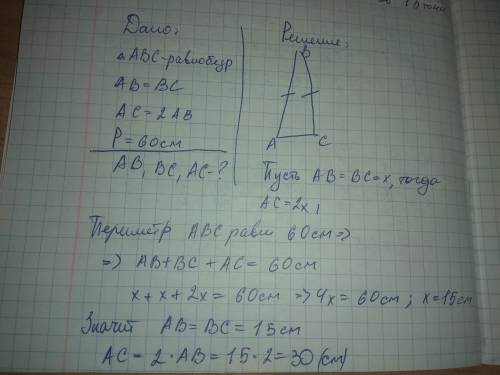 10 тонн
Дано:
△ABC-равнобедр
AB=BC
AC=2AB
P=60см
AB, BC, AC-?
Решение:
B
A
C
Пусть AB=BC=x, тогда
AC=2x,
Периметр ABC равн 60см=>
=> AB+BC+AC= 60см
x+x+2x= 60см =>4x= 60см; x=15см
Значит AB=BC=15см
AC= 2·AB=15·2=30(см)